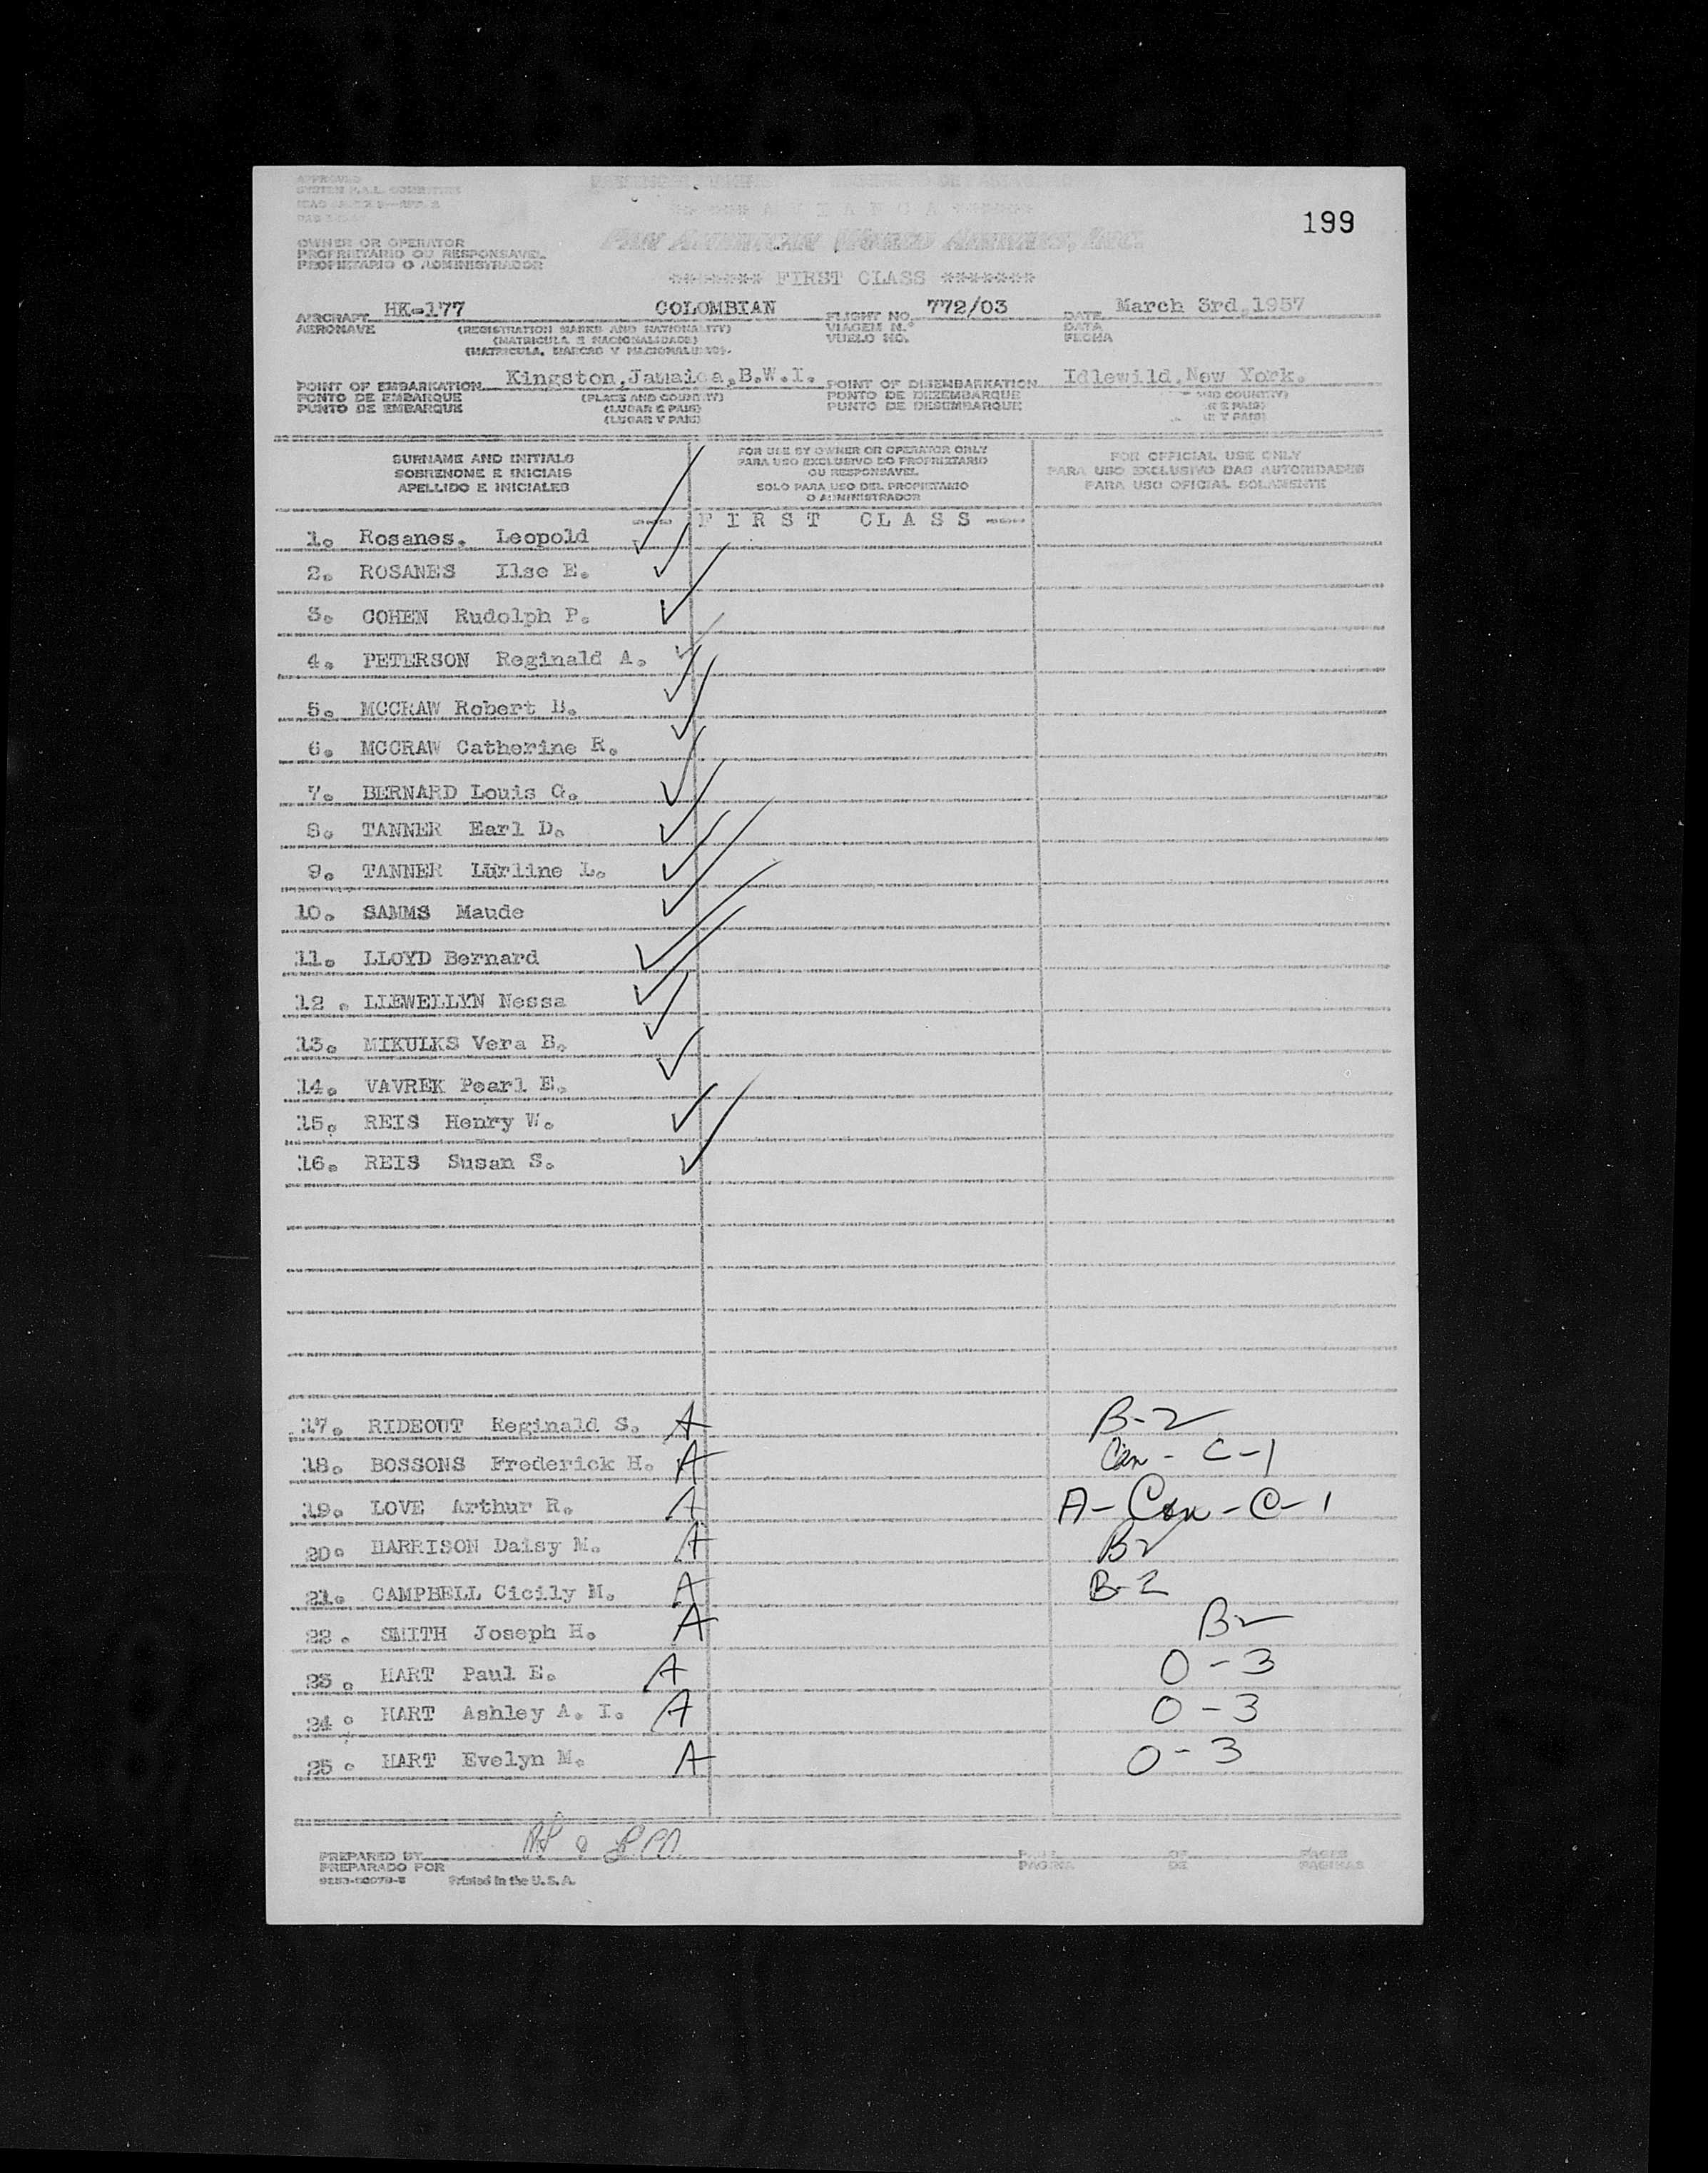 APPROVED
199
****** A V I A N C A ******
PAN AMERICAN WORLD AIRWAYS, INC.
OWNER OR OPERATOR
PROPRIETARIO OU RESPONSAVEL
PROPIETARIO O ADMINISTRADOR
******* FIRST CLASS *******
AIRCRAFT HK-177 COLOMBIAN FLIGHT NO. 772/03 DATE March 3rd,1957
AERONAVE (REGISTRATION MARKS AND NATIONALITY) VIAGEM N.° DATA
(MATRICULA E NACIONALIDADE) VUELO NO. FECHA
(MATRICULA, MARCAS Y NACIONALIDAD).
POINT OF EMBARKATION Kingston,Jamaica,B.W.I. POINT OF DISEMBARKATION Idlewild,New York.
PONTO DE EMBARQUE (PLACE AND COUNTRY) PONTO DE DEZEMBARQUE AND COUNTRY)
PUNTO DE EMBARQUE (LUGAR E PAIS) PUNTO DE DESEMBARQUE E PAIS)
(LUGAR Y PAIS) Y PAIS)
SURNAME AND INITIALS
SOBRENOME E INICIAIS
APELLIDO E INICIALES
FOR USE BY OWNER OR OPERATOR ONLY
PARA USO EXCLUSIVO DO PROPRIETARIO
OU RESPONSAVEL
SOLO PARA USO DEL PROPIETARIO
O ADMINISTRADOR
FOR OFFICIAL USE ONLY
PARA USO EXCLUSIVO DAS AUTORIDADES
PARA USO OFICIAL SOLAMENTE
---- F I R S T C L A S S ----
1. Rosanes. Leopold
2. ROSANES Ilse E.
3. COHEN Rudolph P.
4. PETERSON Reginald A.
5. MCCRAW Robert B.
6. MCCRAW Catherine R.
7. BERNARD Louis G.
8. TANNER Earl D.
9. TANNER Lurline L.
10. SAMMS Maude
11. LLOYD Bernard
12 . LLEWELLYN Nessa
13. MIKULKS Vera B.
14. VAVREK Pearl E.
15. REIS Henry W.
16. REIS Susan S.
17. RIDEOUT Reginald S. A B-2
18. BOSSONS Frederick H. A Can - C-1
19. LOVE Arthur R. A A-Can-C-1
20. HARRISON Daisy M. A B2
21. CAMPBELL Cicily M. A B-2
22. SMITH Joseph H. A B2
23. HART Paul E. A O-3
24. HART Ashley A. I. A O-3
25. HART Evelyn M. A O-3
PREPARED BY PAGE OF PAGES
PREPARADO POR PAGINA DE PAGINAS
Printed in the U. S. A.